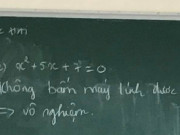 x² + 5x + 7 = 0
không bấm máy tính được
=> vô nghiệm.